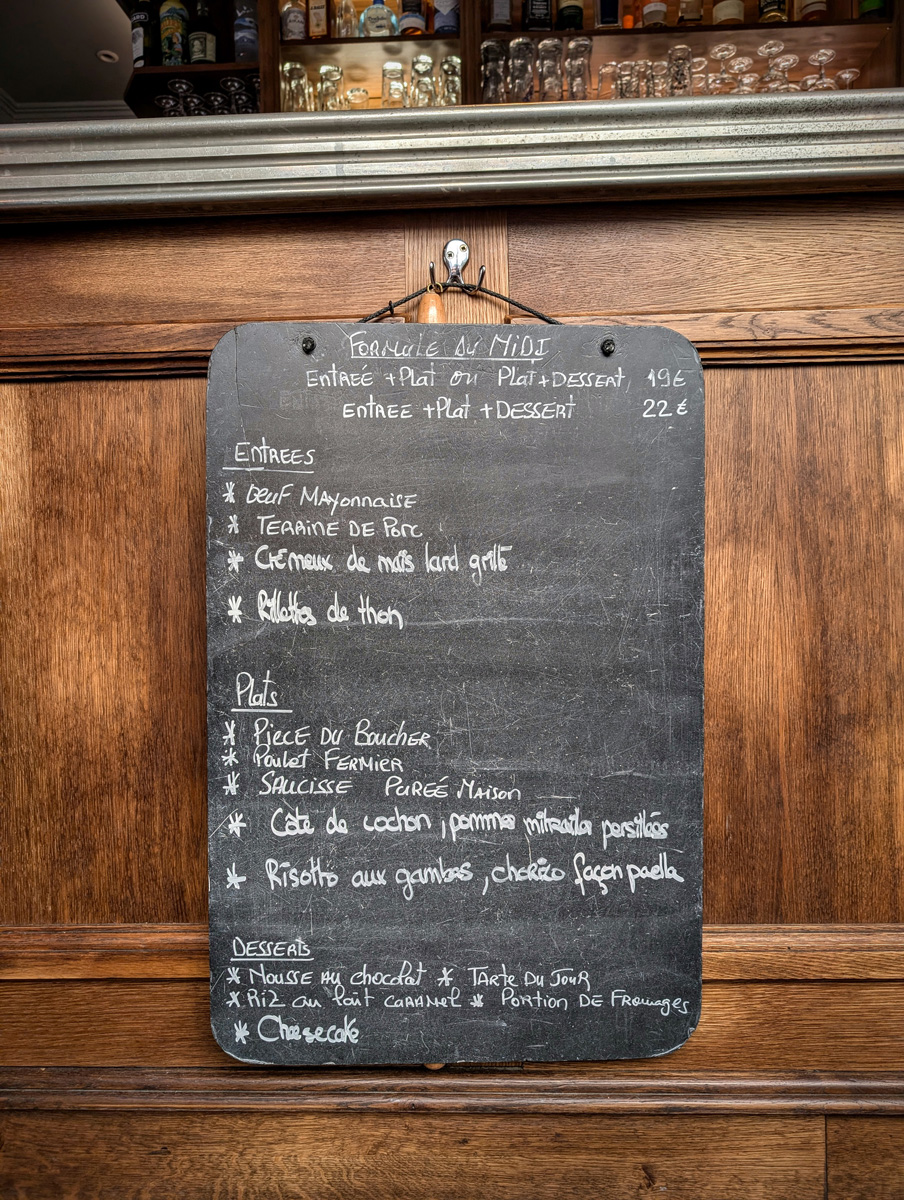 FORMULE DU MIDI
ENTREÉ + Plat ou Plat + DESSERT, 19€
ENTREE + Plat + DESSERT 22€
ENTREES
* Oeuf MAYONNAISE
* TERRINE DE PORC
* Crémeux de maïs lard grillé
* Rillettes de thon
Plats
* PIECE DU BOUCHER
* Poulet FERMIER
* SAUCISSE PUREÉ MAISON
* Côte de cochon, pommes mitraille persillées
* Risotto aux gambas, chorizo façon paella
DESSERTS
* MOUSSE AU chocolat * TARTE DU JOUR
* RIZ au lait CARAMEL * PORTION DE FROMAGES
* Cheesecake